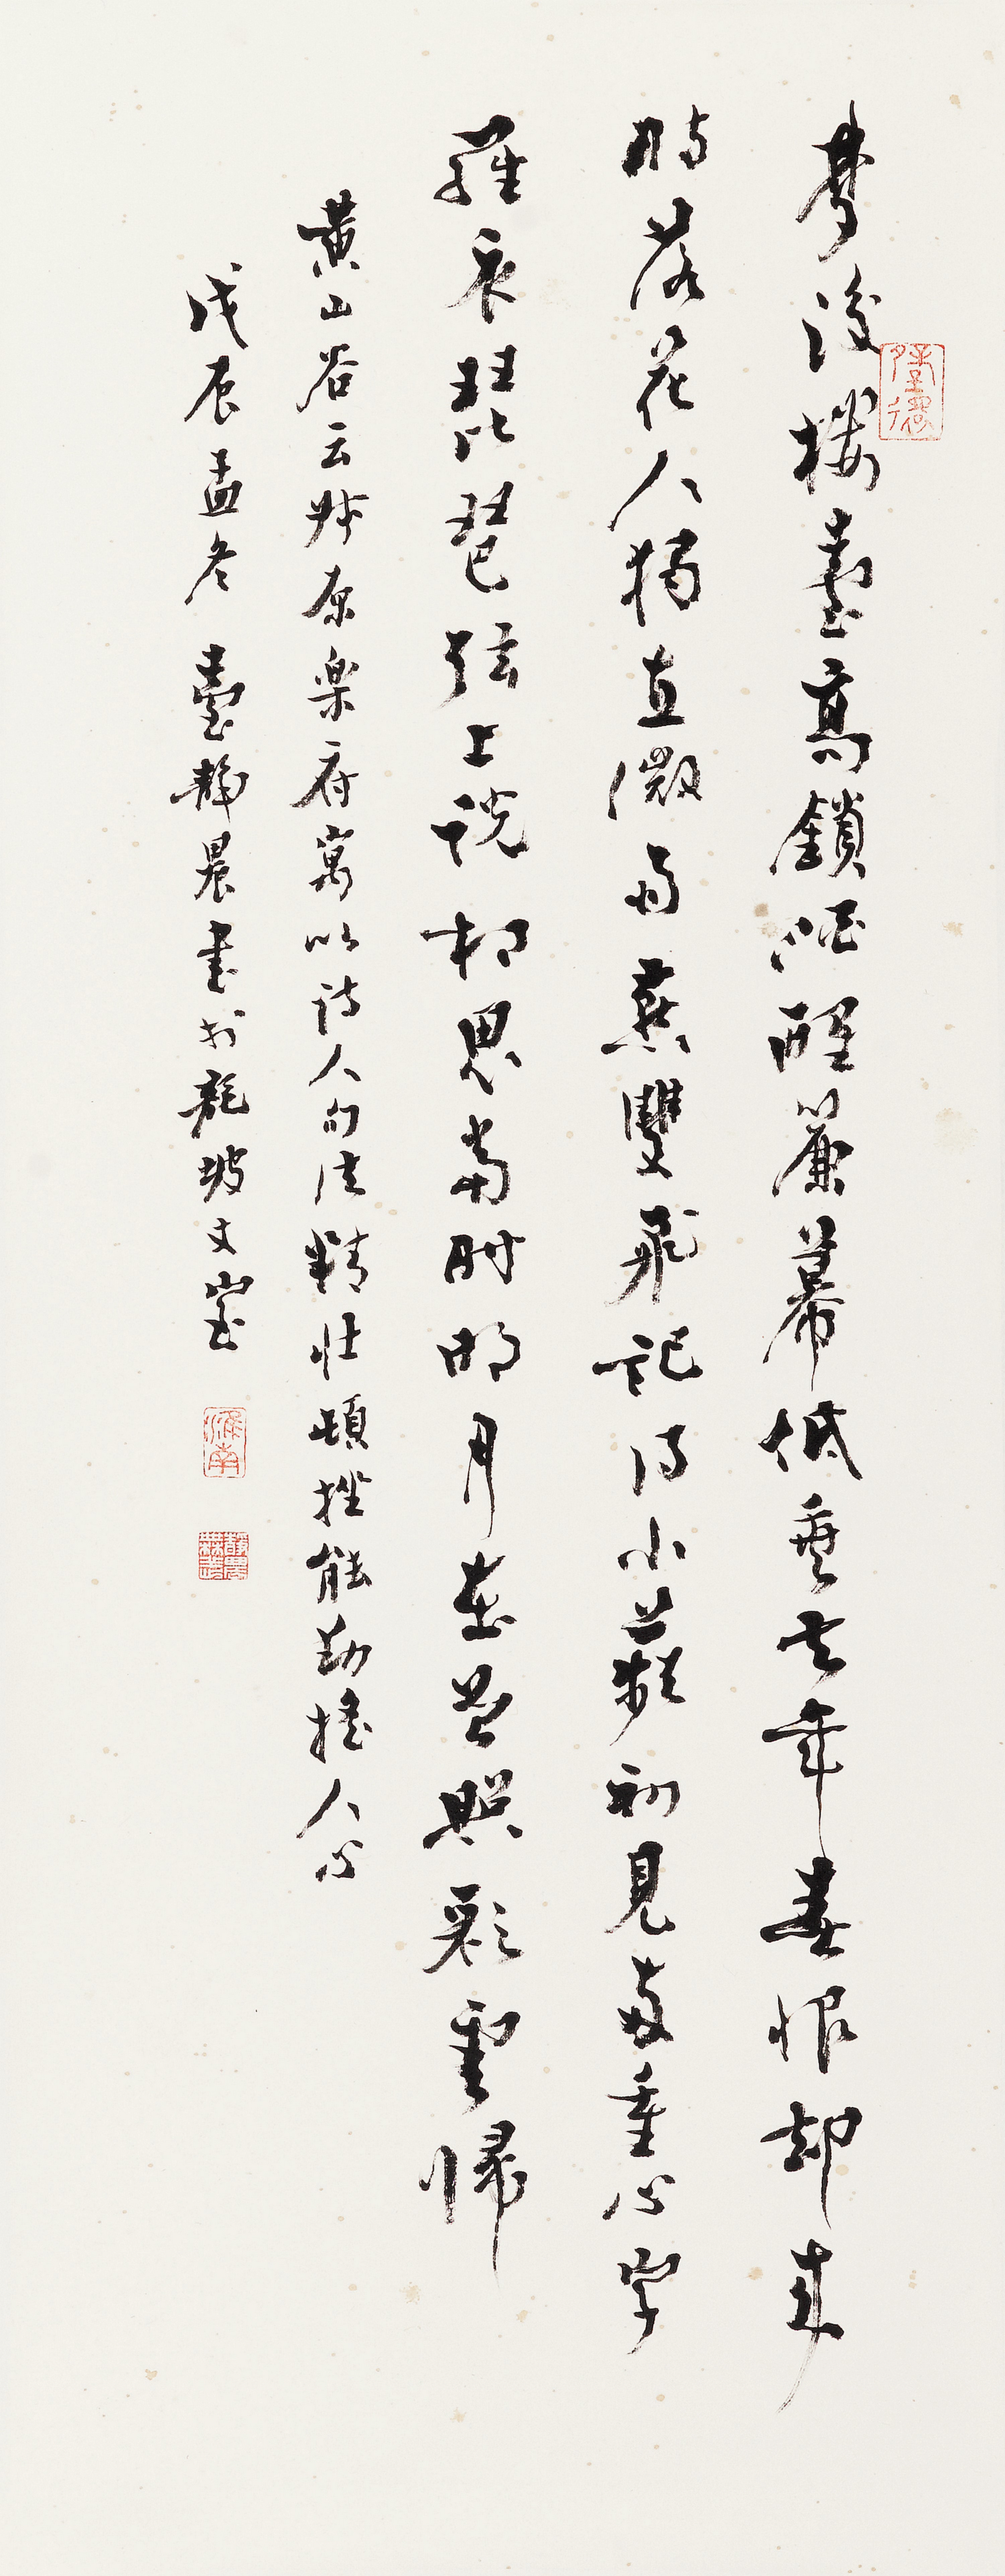 夢後樓臺高鎖酒醒簾幕低垂去年春恨却來
時落花人獨立微雨燕雙飛記得小蘋初見兩重心字
羅衣琵琶弦上説相思當時明月在曾照彩雲歸
黃山谷云叔原樂府寓以詩人句法精壯頓挫能動搖人心
戊辰孟冬 臺靜農書於龍坡丈室
淮南